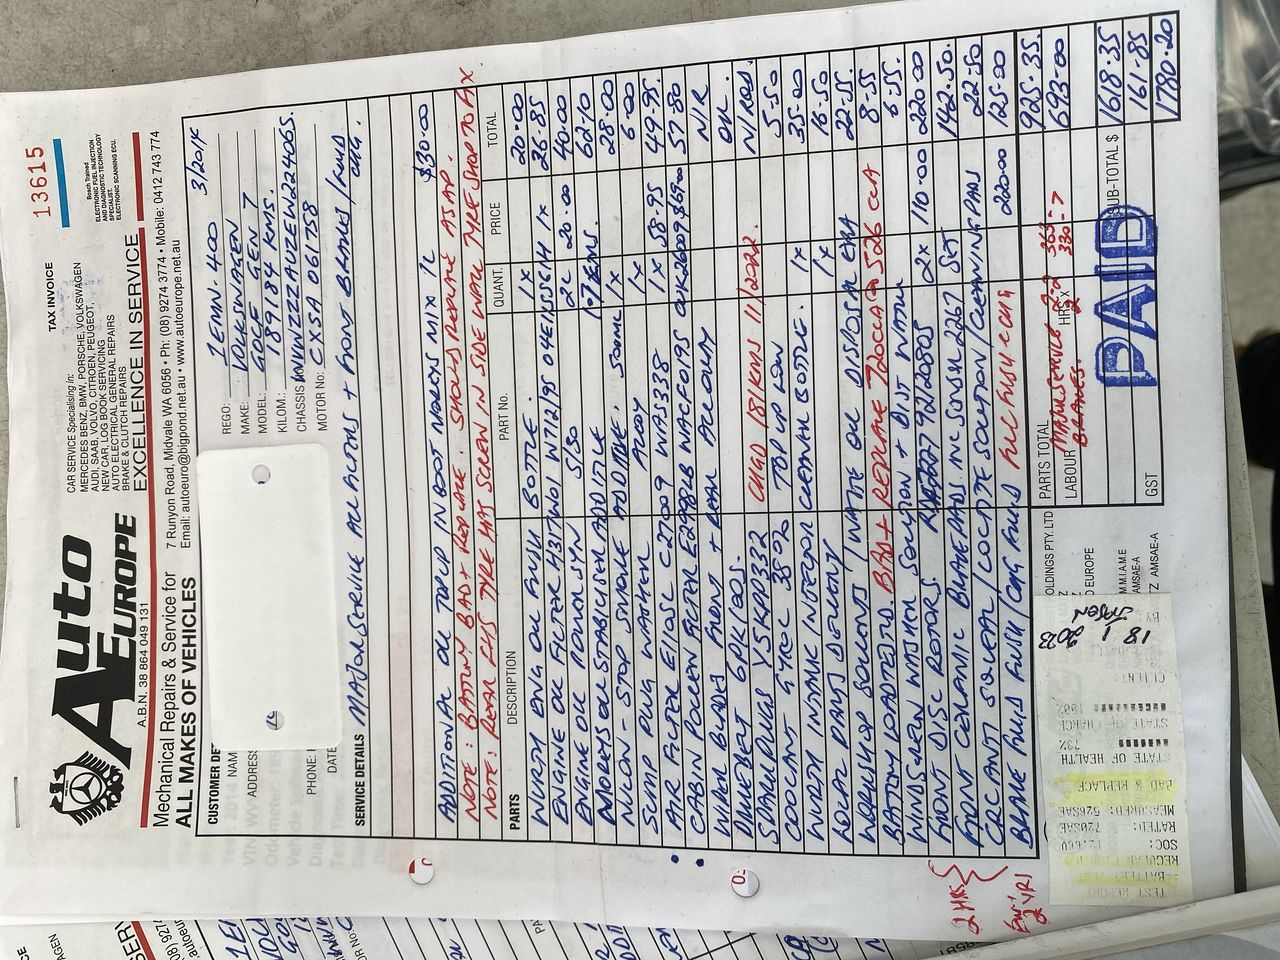 Auto
EUROPE
A.B.N. 38 864 049 131
CAR SERVICE Specialising in:
MERCEDES BENZ, BMW, PORSCHE, VOLKSWAGEN
AUDI, SAAB, VOLVO, CITROEN, PEUGEOT,
NEW CAR, LOG BOOK SERVICING
AUTO ELECTRICAL GENERAL REPAIRS
BRAKE & CLUTCH REPAIRS
EXCELLENCE IN SERVICE
TAX INVOICE
13615
Bosch Trained
ELECTRONIC FUEL INJECTION
AND DIAGNOSTIC TECHNOLOGY
SPECIALIST.
ELECTRONIC SCANNING ECU.
Mechanical Repairs & Service for
ALL MAKES OF VEHICLES
7 Runyon Road, Midvale WA 6056 • Ph: (08) 9274 3774 • Mobile: 0412 743 774
Email: autoeuro@bigpond.net.au • www.autoeurope.net.au
CUSTOMER DE
NAM
ADDRESS
PHONE:
DATE
REGO: 1EMN-400 3/2014
MAKE: VOLKSWAGEN
MODEL: GOLF GEN 7
KILOM.: 189184 KMS.
CHASSIS No WVWZZZAUZEW224065.
MOTOR No: CXSA 061758
SERVICE DETAILS MAJOR SERVICE ALL ACTIONS + FRONT BRAKES/
ADDITIONAL OIL TOP UP IN BOOT NOREYS MIX 1L $30.00
NOTE: BATTERY BAD + REPLACE. SHOULD REPLACE ASAP.
NOTE: REAR L/H/S TYRE HAS SCREW IN SIDE WALL TYRE SHOP TO FIX
PARTS DESCRIPTION PART No. QUANT. PRICE TOTAL
WURTH ENG OIL FLUSH BOTTLE. 1x 20.00
ENGINE OIL FILTER W712/95 1x 26.85
ENGINE OIL PENRITE SYN 5/30 2L 20.00 40.00
MOREYS OIL STABILISER ADDITIVE 62.10
NULON - STOP SMOKE ADDITIVE. 500ML 1x 28.00
SUMP PLUG WASHER ALLOY 1x 6.00
AIR FILTER E1051 C27009 WA5338 1x 58.95 49.95
CABIN POLLEN FILTER WACF0195 $69.00 57.80
WIPER BLADES FRONT + REAR N/R
DRIVE BELT 6PK1005. OK.
SPARK PLUGS CHGD 181KMS 11/2022. N/REQ.
COOLANT TOP UP 5.50
WURTH INTAKE/INJECTOR CLEANER BOTTLE. 1x 35.00
1x 16.50
WORKSHOP SOLVENTS/WASTE OIL DISPOSAL EPA 22.55
BATTERY LOADTESTED. BAD + REPLACE 720CCA 526 CCA 8.55
WINDSCREEN WASHER SOLUTION + DIST WATER 6.55.
FRONT DISC ROTORS. 2x 110.00 220.00
FRONT CERAMIC BRAKE PADS 2267 SET 142.50.
CRC ANTI SQUEAL/LOCTITE SOLUTION/CLEANING PADS 22.50
BRAKE FLUID FLUSH 220.00 125.00
PARTS TOTAL 925.35.
LABOUR MAJOR SERVICE 2.2 363-7 693.00
BRAKES. HRS x 2 330-7
SUB-TOTAL $ 1618.35
GST 161.85
1780.20
PAID
2 HRS
2 YR
OLDINGS PTY. LTD
D EUROPE
M.I.A.M.E
AMSAE-A
TZ AMSAE-A
TEST REPORT
BATTERY TEST
REGULAR
SOC:
RATED: 720SAE
MEASURED: 526SAE
BAD & REPLACE
STATE OF HEALTH
73%
STATE OF CHARGE
100%
CLIENT:
18 1 2023
BY
JASON